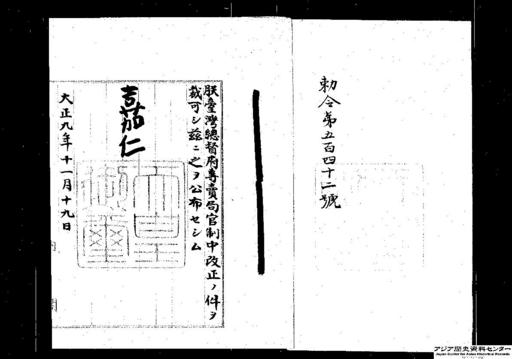 勅令第五百四十二號
朕臺灣總督府專賣局官制中改正ノ件ヲ
裁可シ茲ニ之ヲ公布セシム
嘉仁
天皇御璽
大正九年十一月十九日
アジア歴史資料センター
Japan Center for Asian Historical Records